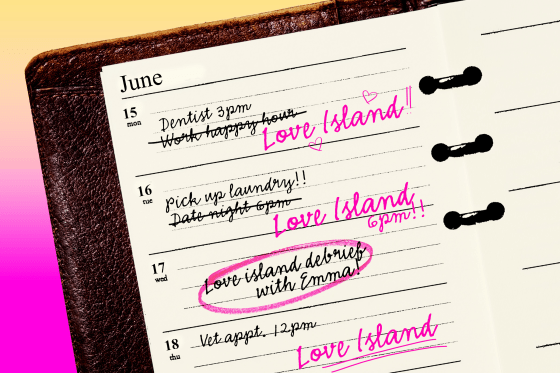 June
15
mon
Dentist 3pm
Work happy hour
Love Island!!
16
tue
pick up laundry!!
Date night 6pm
Love Island
6pm!!
17
wed
Love island debrief
with Emma!
18
thu
Vet appt. 12pm
Love Island